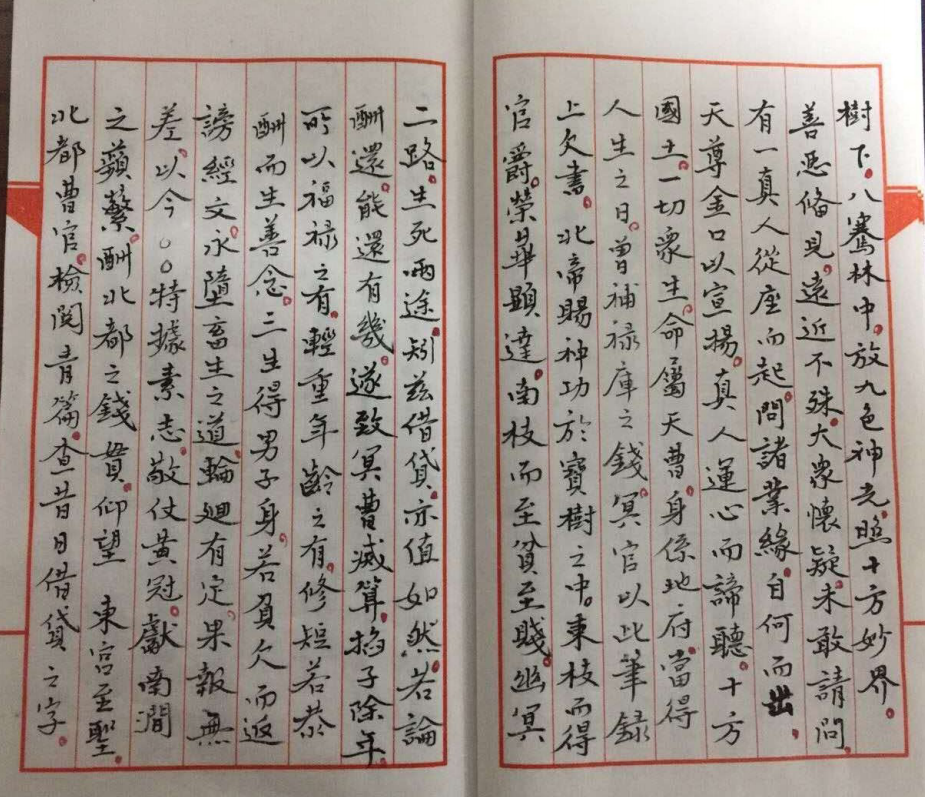 樹下。八騫林中。放九色神光。照十方妙界。
善惡俻見。遠近不殊。大衆懷疑。未敢請問。
有一真人從座而起。問諸業緣。自何而出。
天尊金口以宣揚。真人運心而諦聽。十方
國土。一切衆生。命屬天曹。身係地府。當得
人生之日。曽補禄庫之錢。冥官以此筆録
上欠書。北帝賜神功於寶樹之中。東枝而得
官爵。榮華顯達。南枝而至貧至賤。幽冥
二路。生死兩途。矧兹借貸。亦值如然。若論
酬還。能還有幾。遂致冥曹減算。掐子除年。
所以福禄之有。輕重年齡之有。修短若恭
酬而生善念。三生得男子身。若負欠而返
謗經文。永墮畜生之道。輪廻有定。果報無
差。以今。〇〇特據素志。敬仗黄冠。獻南澗
之蘋蘩。酬北都之錢貫。仰望 東宫至聖。
北都曹官。檢閲青篇。查昔日借貸之字。